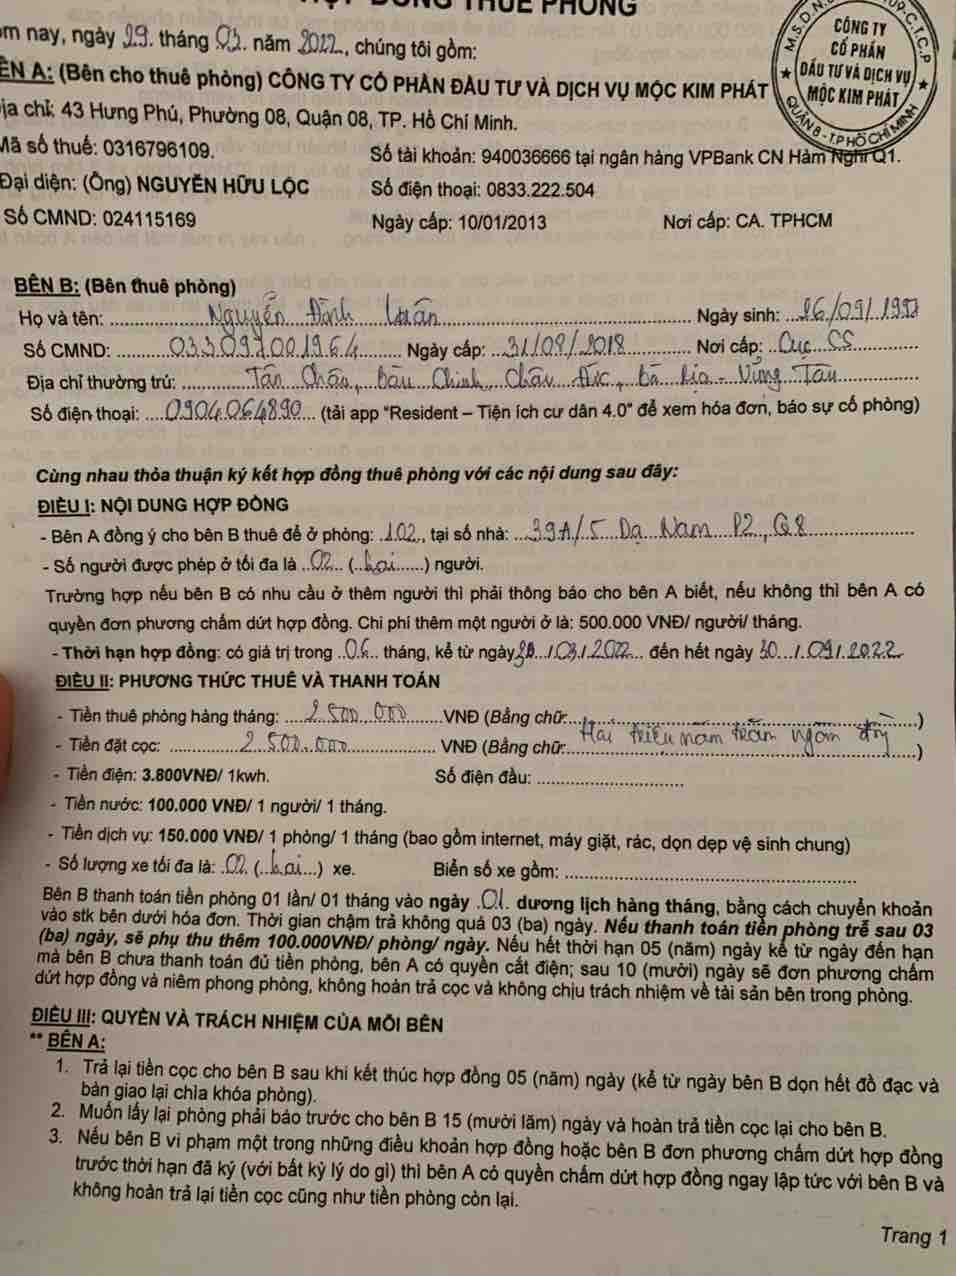 HỢP ĐỒNG THUÊ PHÒNG
ôm nay, ngày 29. tháng 03. năm 2022., chúng tôi gồm:
ÊN A: (Bên cho thuê phòng) CÔNG TY CỔ PHẦN ĐẦU TƯ VÀ DỊCH VỤ MỘC KIM PHÁT
ịa chỉ: 43 Hưng Phú, Phường 08, Quận 08, TP. Hồ Chí Minh.
Mã số thuế: 0316796109. Số tài khoản: 940036666 tại ngân hàng VPBank CN Hàm Nghi Q1.
Đại diện: (Ông) NGUYỄN HỮU LỘC Số điện thoại: 0833.222.504
Số CMND: 024115169 Ngày cấp: 10/01/2013 Nơi cấp: CA. TPHCM
CÔNG TY
CỔ PHẦN
ĐẦU TƯ VÀ DỊCH VỤ
MỘC KIM PHÁT
QUẬN 8 - T.P HỒ CHÍ MINH
BÊN B: (Bên thuê phòng)
Họ và tên: Nguyễn Đình Luân Ngày sinh: 26/09/1997
Số CMND: 033097001964 Ngày cấp: 31/08/2018 Nơi cấp: Cục CS
Địa chỉ thường trú: Tân Châu, Bàu Chinh, Châu Đức, Bà Rịa - Vũng Tàu
Số điện thoại: 0904.064890 (tải app "Resident – Tiện ích cư dân 4.0" để xem hóa đơn, báo sự cố phòng)
Cùng nhau thỏa thuận ký kết hợp đồng thuê phòng với các nội dung sau đây:
ĐIỀU I: NỘI DUNG HỢP ĐỒNG
- Bên A đồng ý cho bên B thuê để ở phòng: 102, tại số nhà: 39A/5 Dạ Nam P2, Q8
- Số người được phép ở tối đa là 02 (hai) người.
Trường hợp nếu bên B có nhu cầu ở thêm người thì phải thông báo cho bên A biết, nếu không thì bên A có
quyền đơn phương chấm dứt hợp đồng. Chi phí thêm một người ở là: 500.000 VNĐ/ người/ tháng.
- Thời hạn hợp đồng: có giá trị trong 06 tháng, kể từ ngày /03/2022 đến hết ngày 30/09/2022
ĐIỀU II: PHƯƠNG THỨC THUÊ VÀ THANH TOÁN
- Tiền thuê phòng hàng tháng: 2.500.000 VNĐ (Bằng chữ: )
- Tiền đặt cọc: 2.500.000 VNĐ (Bằng chữ: Hai triệu năm trăm ngàn đồng )
- Tiền điện: 3.800VNĐ/ 1kwh. Số điện đầu:
- Tiền nước: 100.000 VNĐ/ 1 người/ 1 tháng.
- Tiền dịch vụ: 150.000 VNĐ/ 1 phòng/ 1 tháng (bao gồm internet, máy giặt, rác, dọn dẹp vệ sinh chung)
- Số lượng xe tối đa là: 02 (hai) xe. Biển số xe gồm:
Bên B thanh toán tiền phòng 01 lần/ 01 tháng vào ngày 01. dương lịch hàng tháng, bằng cách chuyển khoản
vào stk bên dưới hóa đơn. Thời gian chậm trả không quá 03 (ba) ngày. Nếu thanh toán tiền phòng trễ sau 03
(ba) ngày, sẽ phụ thu thêm 100.000VNĐ/ phòng/ ngày. Nếu hết thời hạn 05 (năm) ngày kể từ ngày đến hạn
mà bên B chưa thanh toán đủ tiền phòng, bên A có quyền cắt điện; sau 10 (mười) ngày sẽ đơn phương chấm
dứt hợp đồng và niêm phong phòng, không hoàn trả cọc và không chịu trách nhiệm về tài sản bên trong phòng.
ĐIỀU III: QUYỀN VÀ TRÁCH NHIỆM CỦA MỖI BÊN
** BÊN A:
1. Trả lại tiền cọc cho bên B sau khi kết thúc hợp đồng 05 (năm) ngày (kể từ ngày bên B dọn hết đồ đạc và
bàn giao lại chìa khóa phòng).
2. Muốn lấy lại phòng phải báo trước cho bên B 15 (mười lăm) ngày và hoàn trả tiền cọc lại cho bên B.
3. Nếu bên B vi phạm một trong những điều khoản hợp đồng hoặc bên B đơn phương chấm dứt hợp đồng
trước thời hạn đã ký (với bất kỳ lý do gì) thì bên A có quyền chấm dứt hợp đồng ngay lập tức với bên B và
không hoàn trả lại tiền cọc cũng như tiền phòng còn lại.
Trang 1